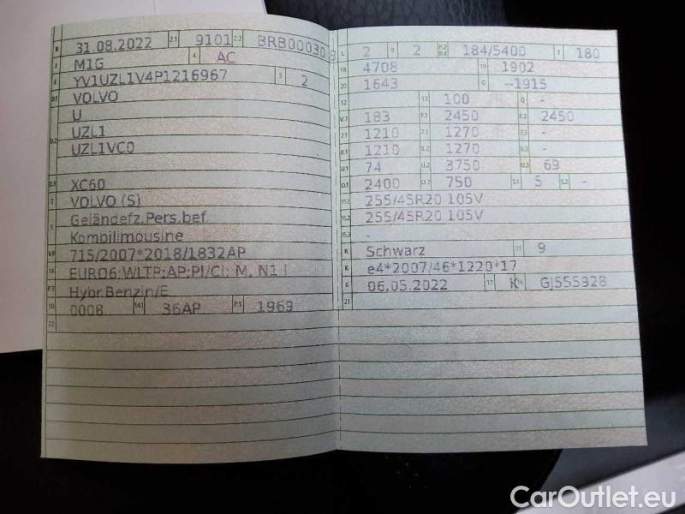 31.08.2022 9101 BRB00030
M1G AC
YV1UZL1V4P1216967 2
VOLVO
U
UZL1
UZL1VC0
XC60
VOLVO (S)
Geländefz.Pers.bef.
Kombilimousine
715/2007*2018/1832AP
EURO6;WLTP;AP;PI/CI; M, N1 I
Hybr.Benzin/E
0008 36AP 1969
2 2 184/5400 180
4708 1902
1643 --1915
100 -
183 2450 2450
1210 1270 -
1210 1270 -
74 3750 69
2400 750 5 -
255/45R20 105V
255/45R20 105V
-
Schwarz 9
e4*2007/46*1220*17
06.05.2022 K GJ555928
CarOutlet.eu